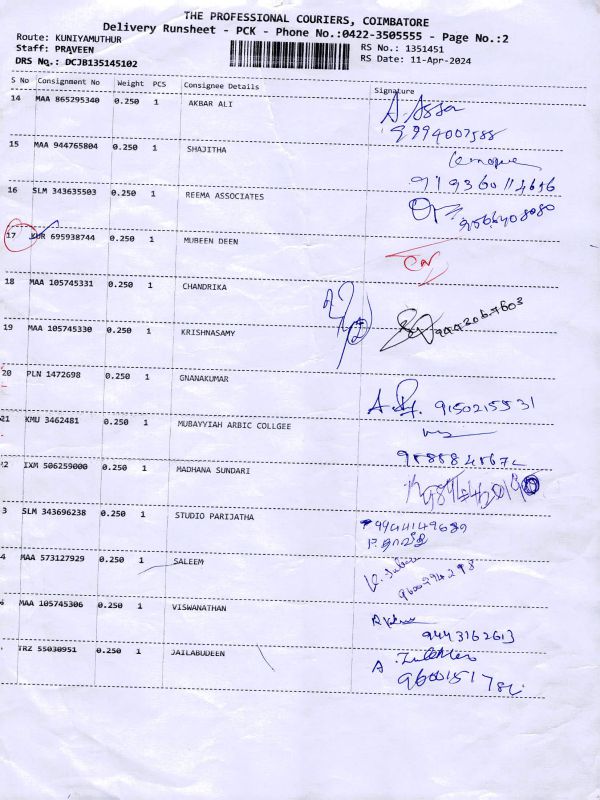 THE PROFESSIONAL COURIERS, COIMBATORE
Delivery Runsheet - PCK - Phone No.:0422-3505555 - Page No.:2
Route: KUNIYAMUTHUR
RS No.: 1351451
Staff: PRAVEEN
RS Date: 11-Apr-2024
DRS No.: DCJB135145102
S No Consignment No Weight PCS Consignee Details Signature
14 MAA 865295340 0.250 1 AKBAR ALI
9994007588
15 MAA 944765804 0.250 1 SHAJITHA
16 SLM 343635503 0.250 1 REEMA ASSOCIATES
17 KUR 695938744 0.250 1 MUBEEN DEEN
18 MAA 105745331 0.250 1 CHANDRIKA
19 MAA 105745330 0.250 1 KRISHNASAMY
9442067603
20 PLN 1472698 0.250 1 GNANAKUMAR
9150215531
21 KMU 3462481 0.250 1 MUBAYYIAH ARBIC COLLGEE
2 IXM 506259000 0.250 1 MADHANA SUNDARI
3 SLM 343696238 0.250 1 STUDIO PARIJATHA
9944149689
4 MAA 573127929 0.250 1 SALEEM
9600294298
MAA 105745306 0.250 1 VISWANATHAN
9443162613
TRZ 55030951 0.250 1 JAILABUDEEN